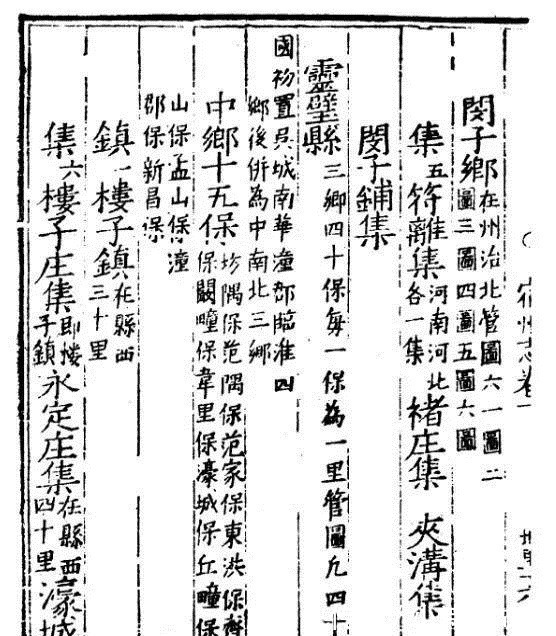 宿州志卷一
閔子鄉在州治北管圖六一圖二
圖三圖四圖五圖六圖
集五符離集河南河北各一集褚庄集 夾溝集
閔子鋪集
靈壁縣三鄉四十保每一保為一里管圖凡四十
國初置吳城南華潼郡臨淮四
鄉後併為中南北三鄉
中鄉十五保坊隅保范隅保范家保東洪保
保闞疃保韋里保濠城保丘疃保
山保孟山保潼
郡保新昌保
鎮一樓子鎮在縣西三十里
集六樓子庄集即樓子鎮永定庄集在縣西四十里濠城